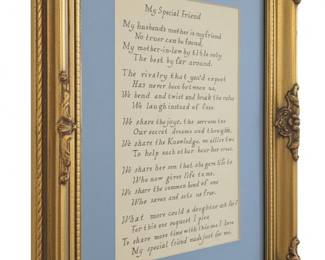 My Special Friend
My husband's mother is my friend
No truer can be found,
My mother-in-law by title only
The best by far around.
The rivalry that you'd expect
Has never been between us,
We bend and twist and break the rules
We laugh instead of fuss.
We share the joys, the sorrows too
Our secret dreams and thoughts,
We share the Knowledge, no utter two
To help each other bear our cross.
We share her son that she gave life to
Who now gives life to me,
We share the common bond of one
Who saves and sets us free.
What more could a daughter ask for
For this one request I give
To share more time with this one I love
My special friend made just for me.